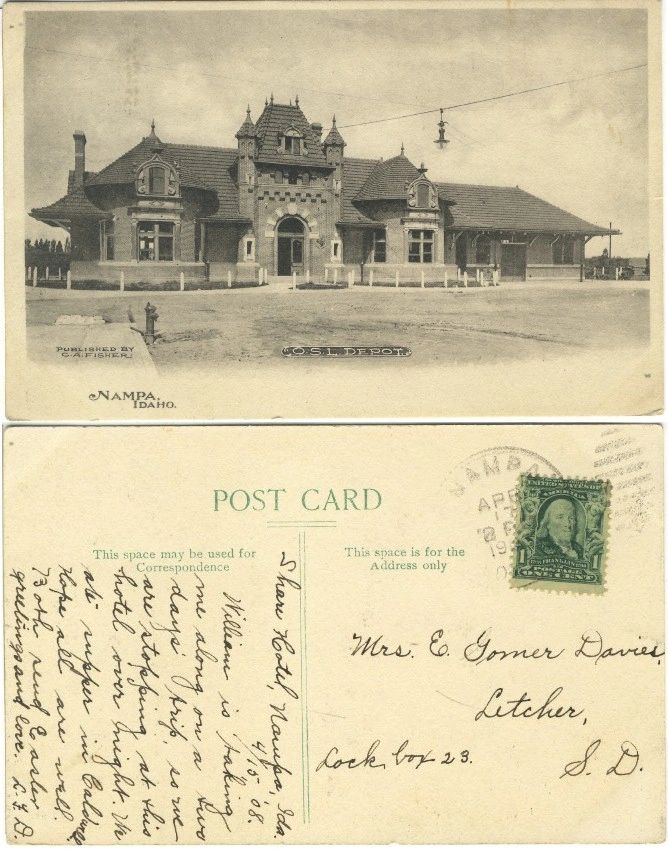 PUBLISHED BY
G. A. FISHER.
O. S. L. DEPOT.
NAMPA,
IDAHO.
POST CARD
This space may be used for
Correspondence
This space is for the
Address only
NAMPA
APR
19
UNITED STATES OF
AMERICA
1
1
FRANKLIN
POSTAGE
ONE CENT
Mrs. E. Gomer Davies,
Letcher,
Lock box 23.
S. D.
Hotel, Nampa, Ida.
4/15 '08.
William is taking
me along on a two
days' trip, so we
are stopping at this
hotel over night. We
ate supper in Caldwell.
Hope all are well.
Both send Easter
greetings and love. L. F. D.